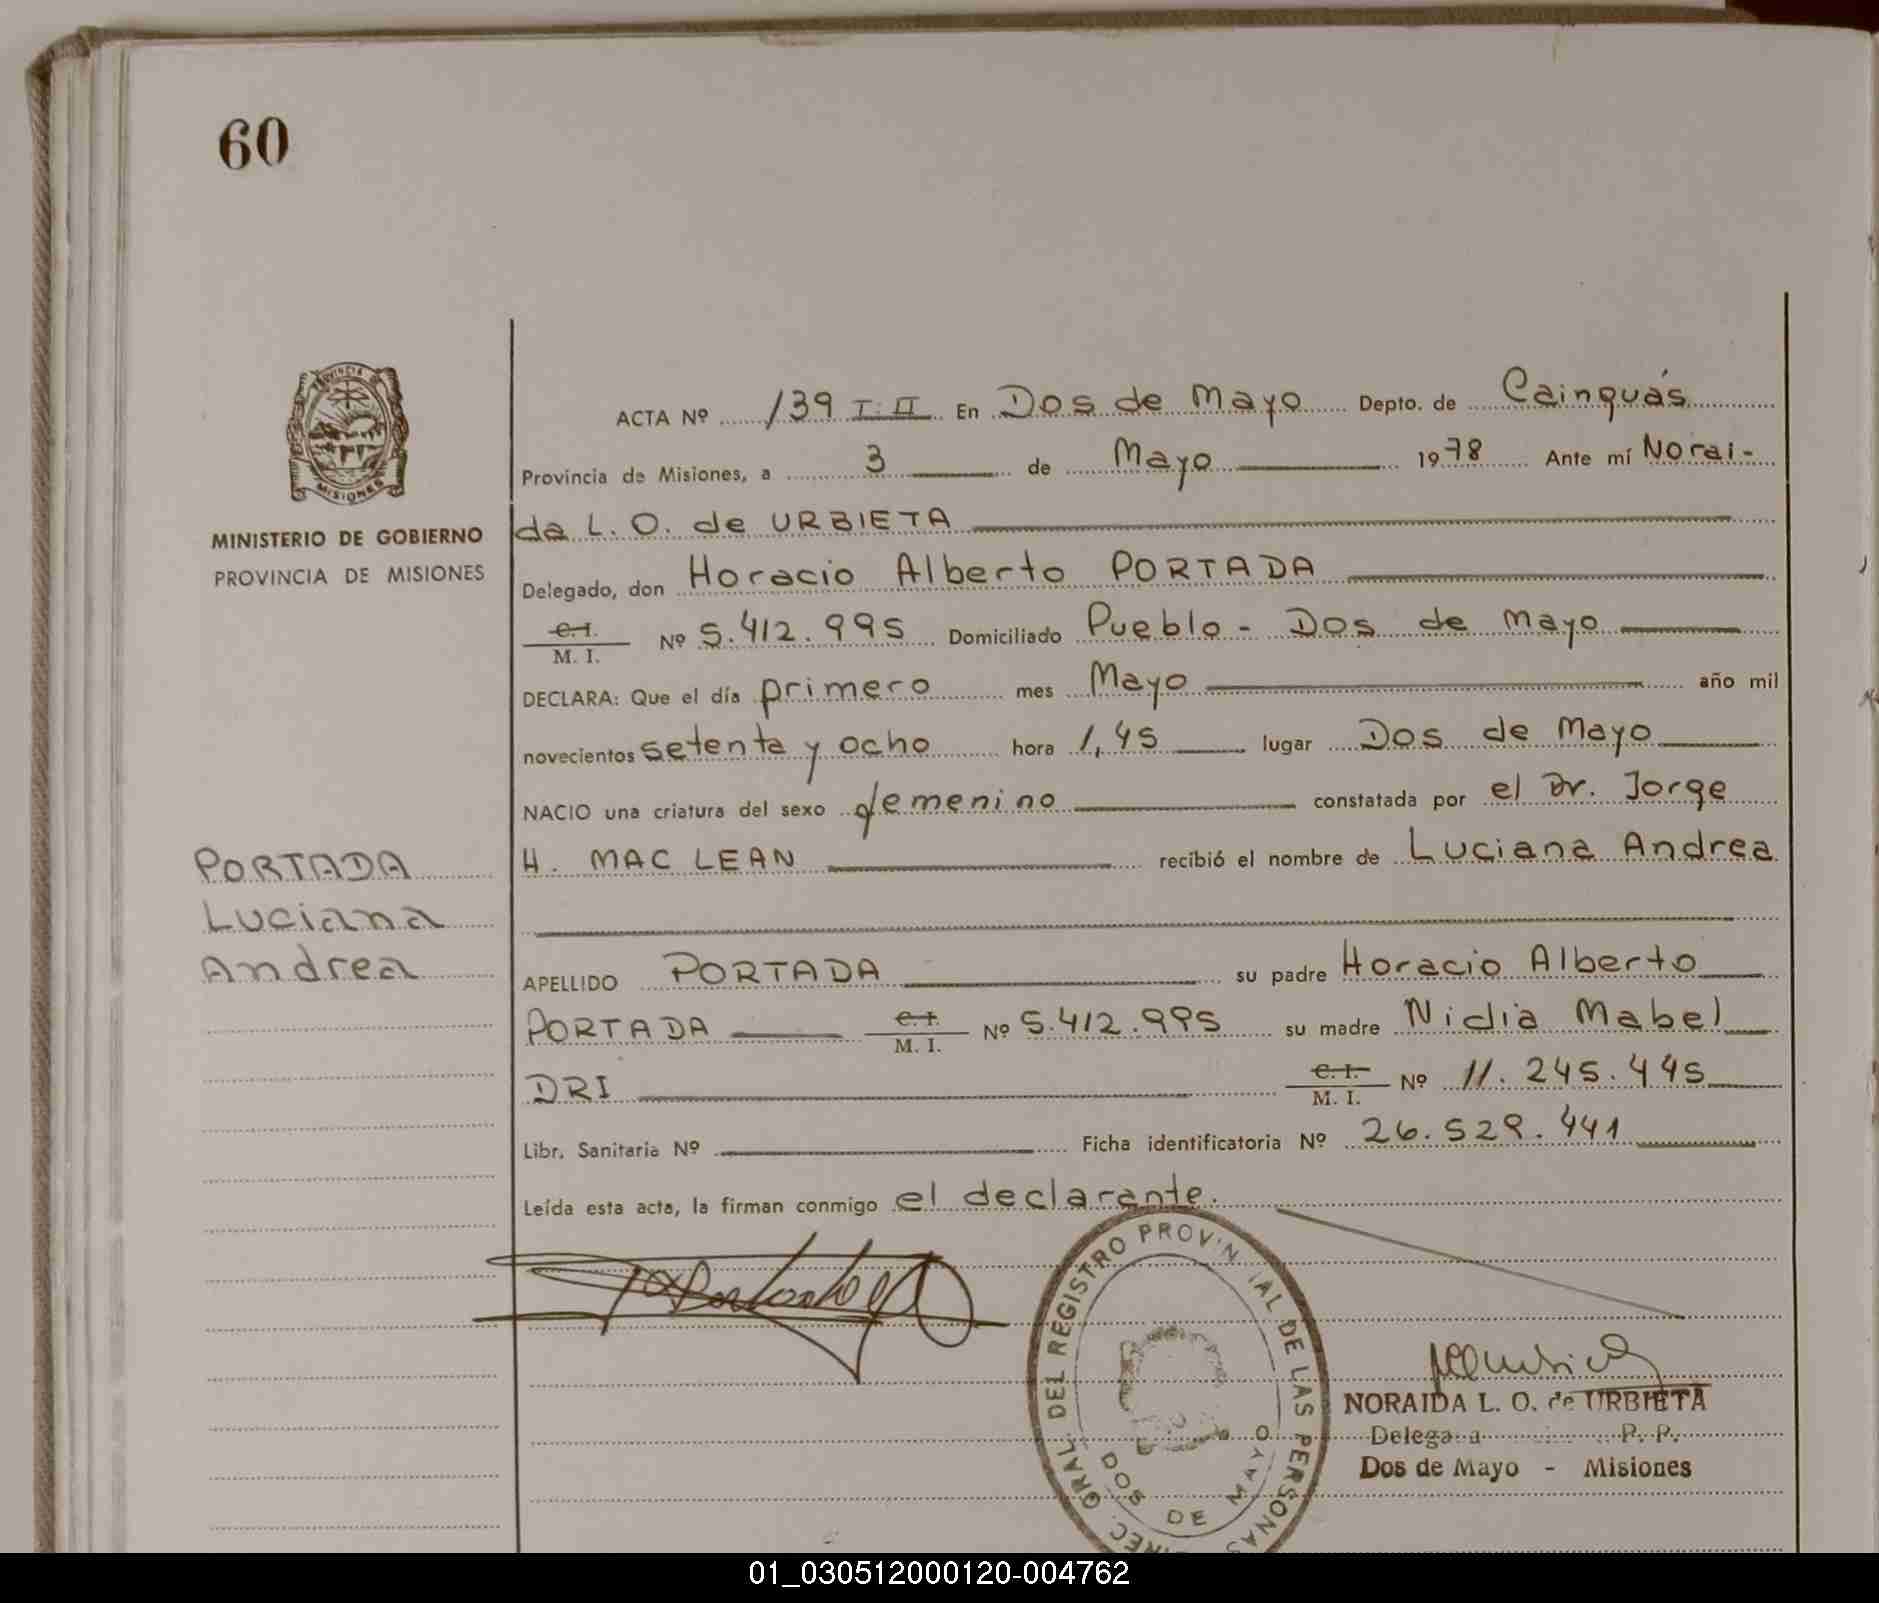 60
PROVINCIA DE
MISIONES
MINISTERIO DE GOBIERNO
PROVINCIA DE MISIONES
PORTADA
Luciana
Andrea
ACTA Nº 139 I II En Dos de Mayo Depto. de Cainguás
Provincia de Misiones, a 3 de Mayo 1978 Ante mí Norai-
da L. O. de URBIETA
Delegado, don Horacio Alberto PORTADA
C.I.
M. I. Nº 5.412.995 Domiciliado Pueblo - Dos de Mayo
DECLARA: Que el día primero mes Mayo año mil
novecientos setenta y ocho hora 1,45 lugar Dos de Mayo
NACIO una criatura del sexo femenino constatada por el Dr. Jorge
H. MAC LEAN recibió el nombre de Luciana Andrea
APELLIDO PORTADA su padre Horacio Alberto
PORTADA C.I. M. I. Nº 5.412.995 su madre Nidia Mabel
DRI C.I. M. I. Nº 11.245.445
Libr. Sanitaria Nº Ficha identificatoria Nº 26.529.441
Leída esta acta, la firman conmigo el declarante.
DIREC. GRAL. DEL REGISTRO PROVIN IAL DE LAS PERSONAS
DOS DE MAYO
NORAIDA L. O. de URBIETA
Delega a P. P.
Dos de Mayo - Misiones
01_030512000120-004762